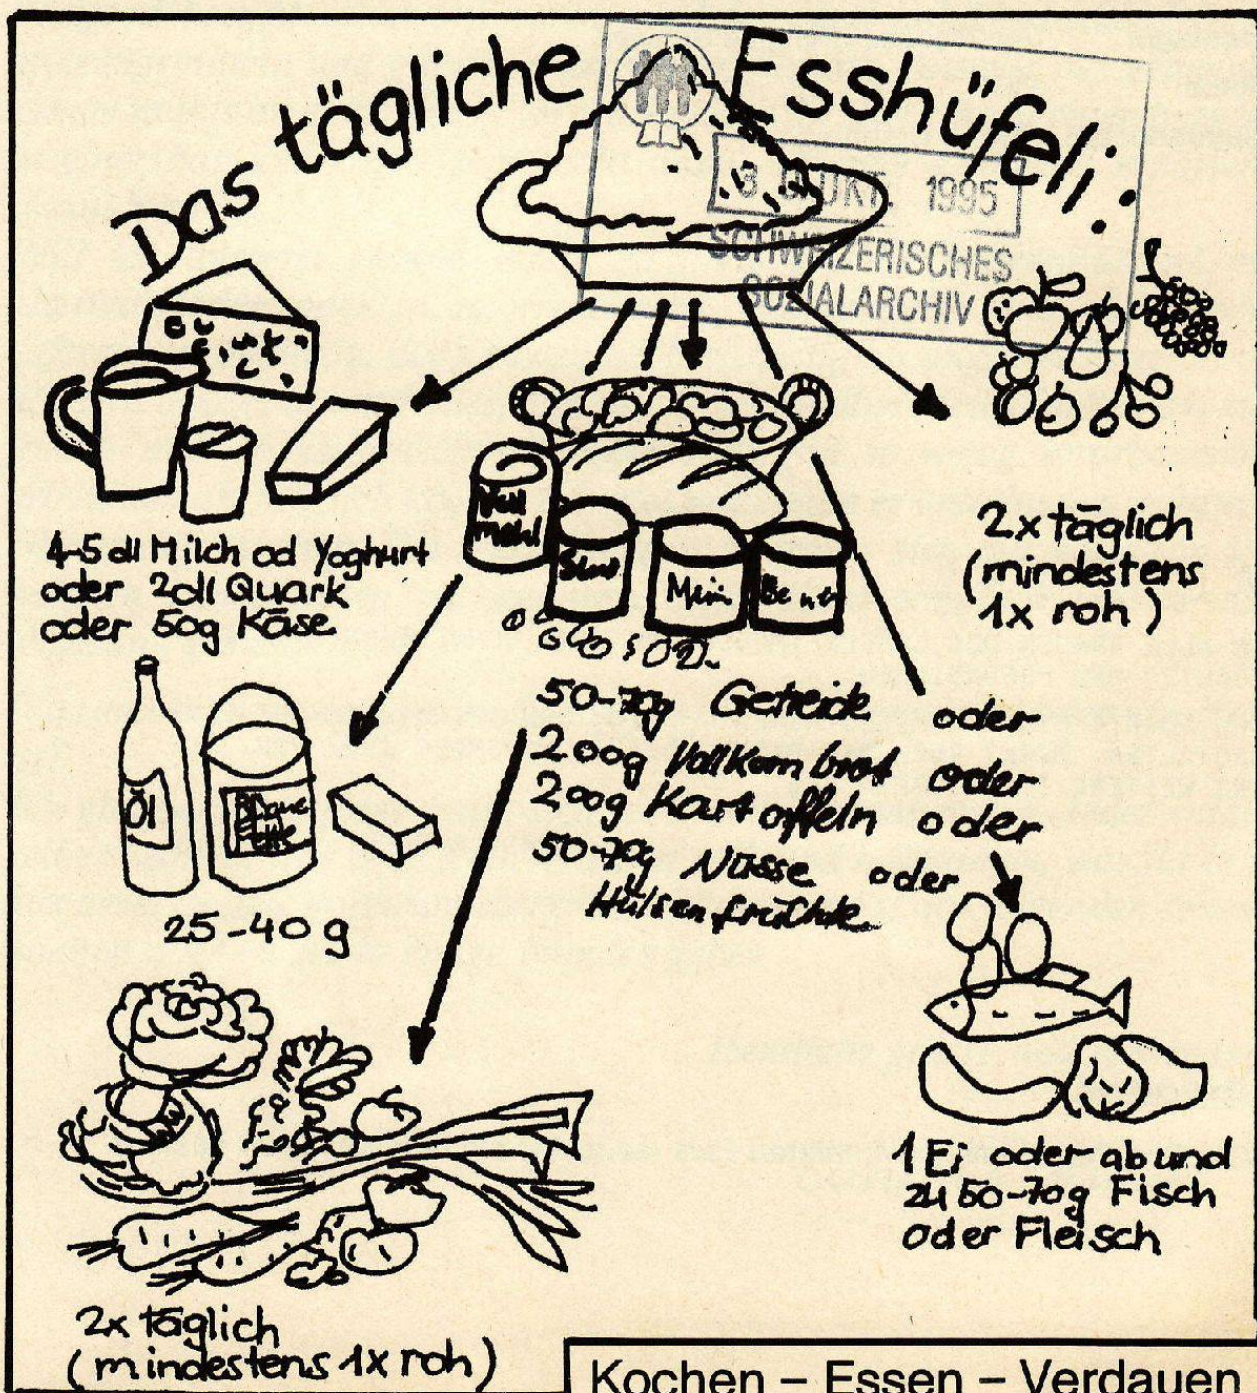 Das tägliche Esshüfeli:
3 0. OKT. 1995
SCHWEIZERISCHES
SOZIALARCHIV
4-5 dl Milch od Yoghurt
oder 2dl Quark
oder 50g Käse
Voll
mehl
2x täglich
(mindestens
1x roh)
50-70g Getreide oder
200g Vollkornbrot oder
200g Kartoffeln oder
50-70g Nüsse oder
Hülsenfrüchte
Öl
25-40 g
1 Ei oder ab und
zu 50-70g Fisch
oder Fleisch
2x täglich
(mindestens 1x roh)
Kochen – Essen – Verdauen